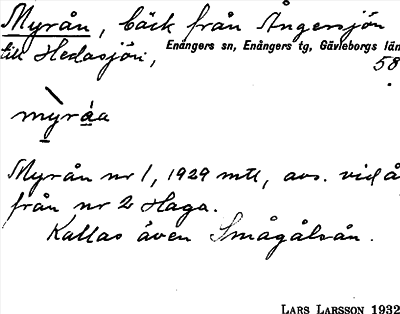 Myrån, bäck från Ångersjön
till Hedasjön, Enångers sn, Enångers tg, Gävleborgs län
58
my̱rá̱a
Myrån nr 1, 1929 mtl, avs. vid å
från nr 2 Haga.
Kallas även Smågålsån.
LARS LARSSON 1932